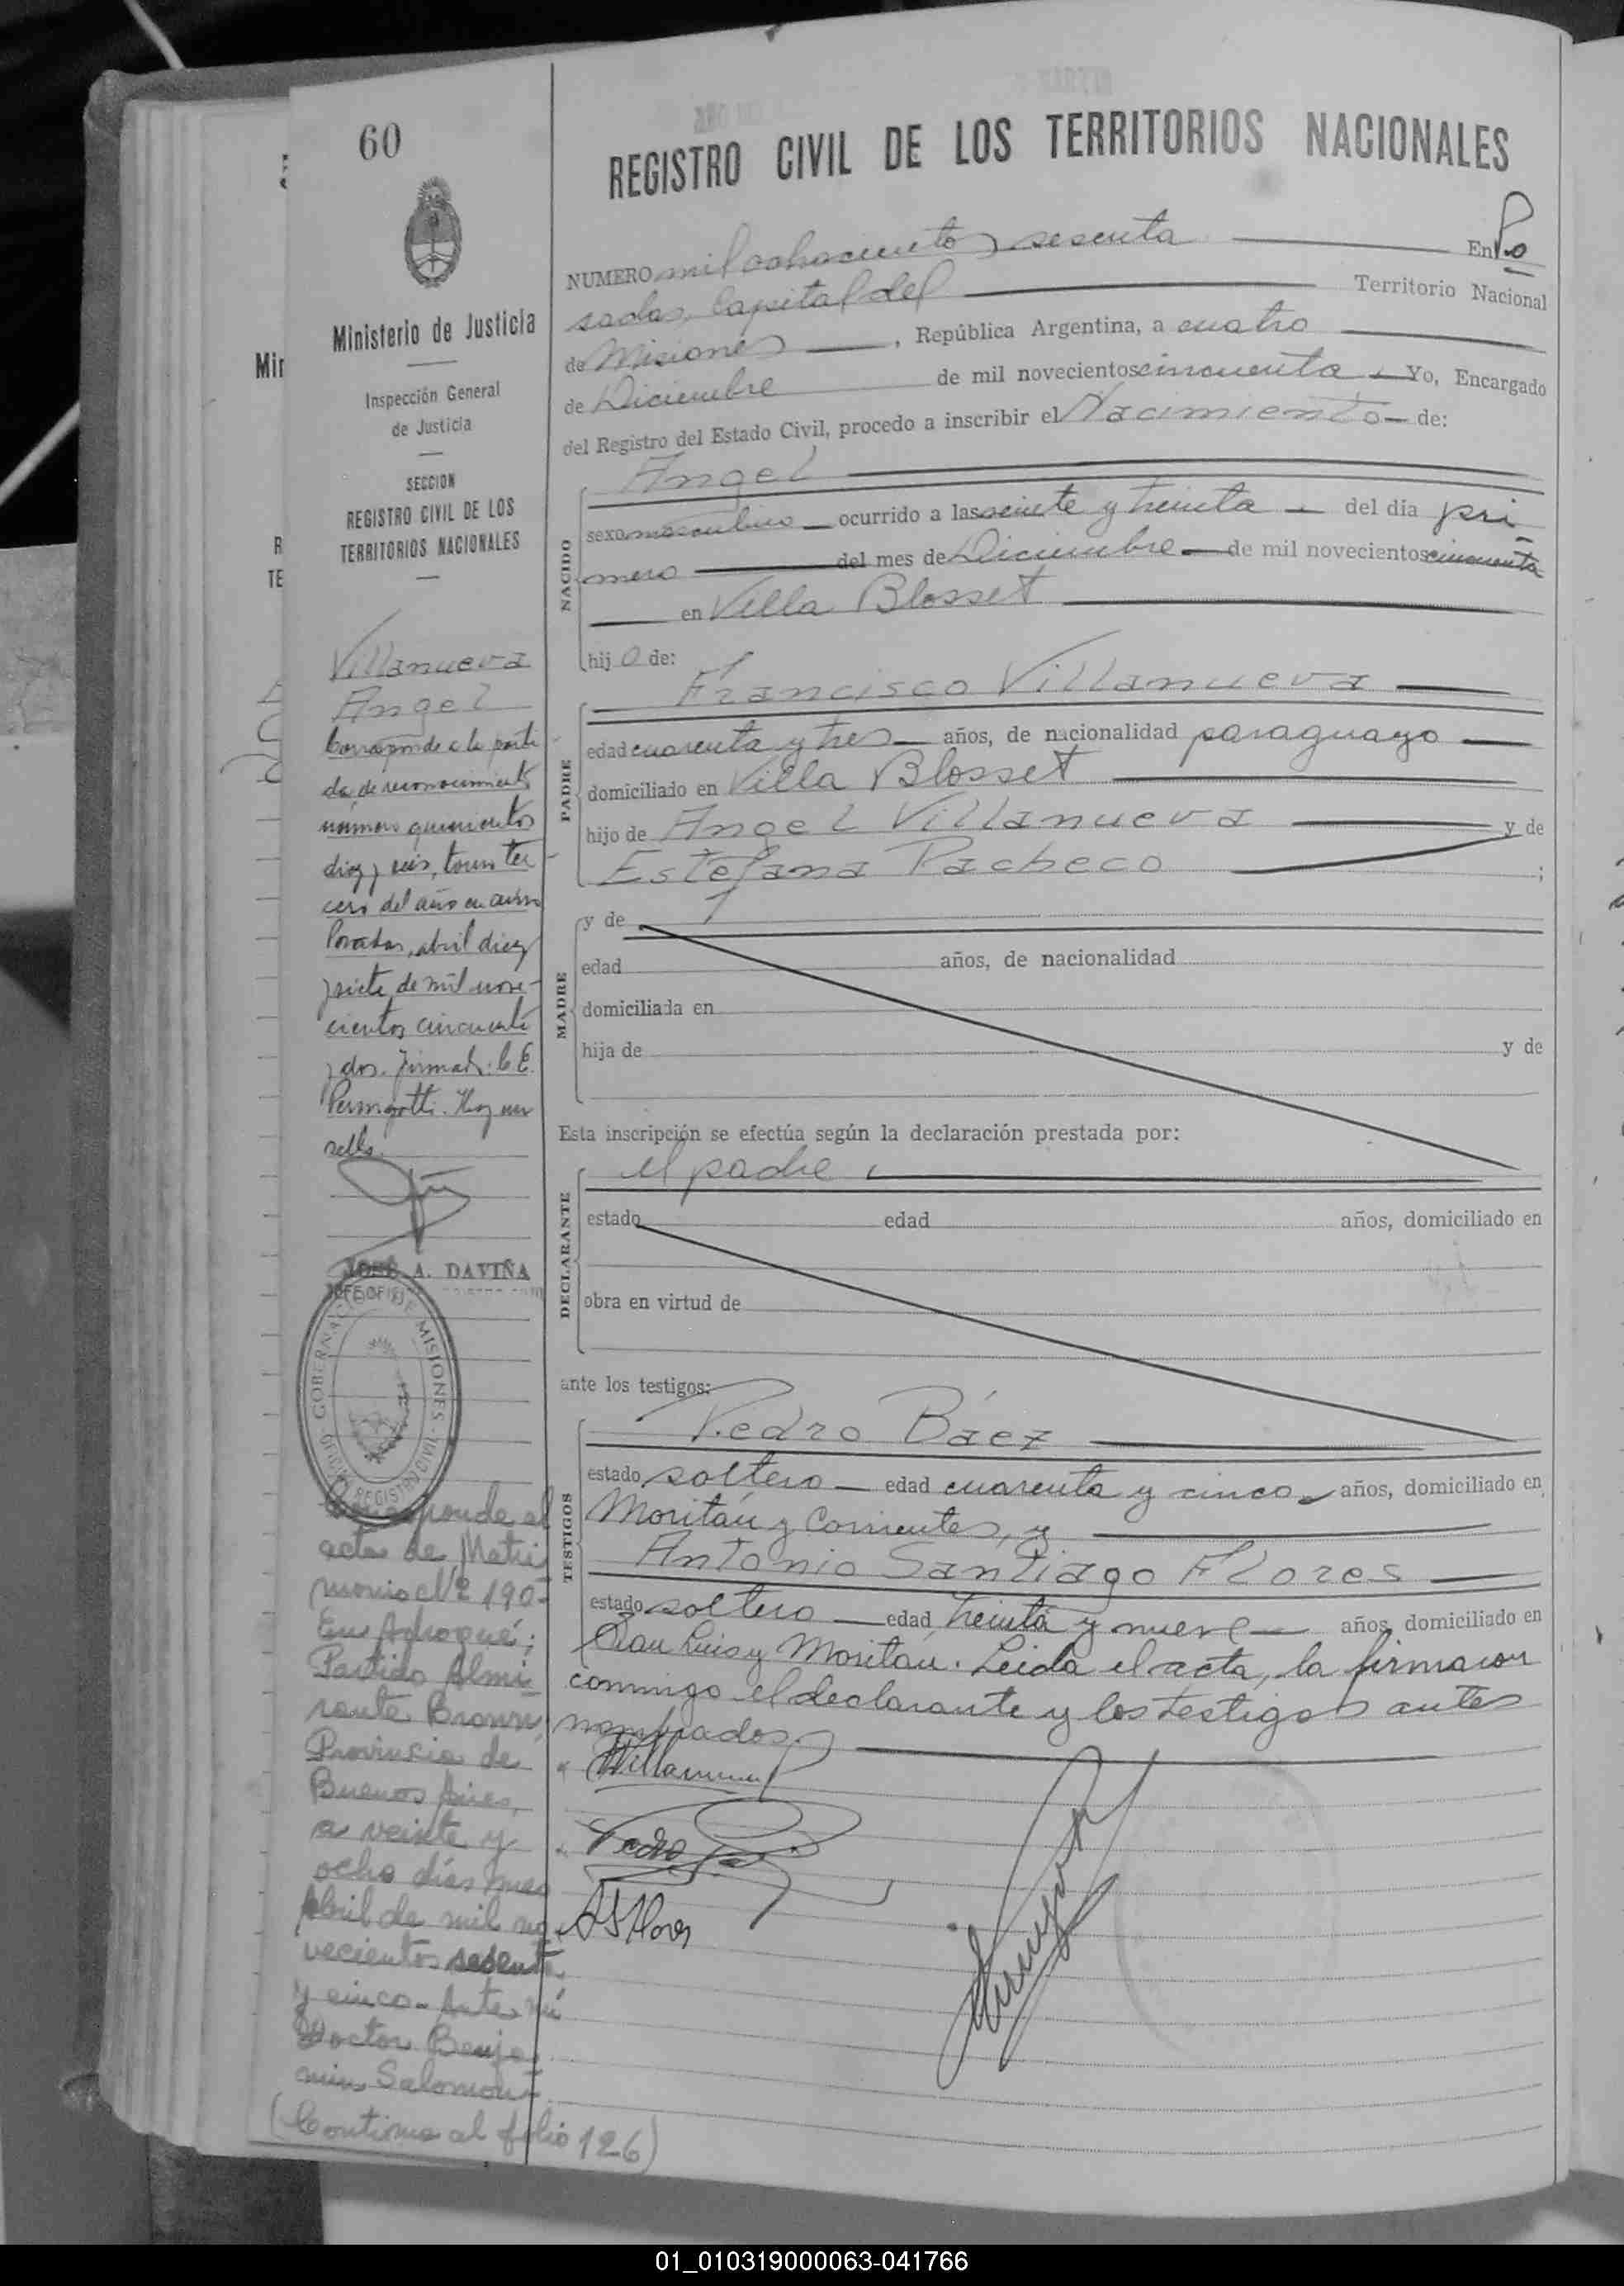 60
Ministerio de Justicia
Inspección General
de Justicia
SECCION
REGISTRO CIVIL DE LOS
TERRITORIOS NACIONALES
Villanueva
Angel
Corresponde a la parti
da de reconocimiento
número quinientos
diez y seis, tomo ter
cero del año en curso
Posadas, abril diez
y siete de mil nove-
cientos cincuenta
y dos. Firmado: C. E.
Hay un
sello.
JOSÉ A. DAVIÑA
GOBERNACION DE MISIONES
REGISTRO CIVIL
Corresponde al
acta de Matri
monio Nº 190-
En Adrogué;
Partido Almi
rante Brown,
Provincia de
Buenos Aires,
a veinte y
ocho días mes
Abril de mil no
vecientos sesenta
y cinco - Ante mí
Doctor Benja
min Salomón
(Continua al folio 126)
REGISTRO CIVIL DE LOS TERRITORIOS NACIONALES
NUMERO mil ochocientos sesenta En Po
sadas, Capital del Territorio Nacional
de Misiones, República Argentina, a cuatro
de Diciembre de mil novecientos cincuenta. Yo, Encargado
del Registro del Estado Civil, procedo a inscribir el Nacimiento de:
NACIDO
Angel
sexo masculino ocurrido a las siete y treinta del día pri
mero del mes de Diciembre de mil novecientos cincuenta
en Villa Blosset
hijo de:
PADRE
Francisco Villanueva
edad cuarenta y tres años, de nacionalidad paraguayo
domiciliado en Villa Blosset
hijo de Angel Villanueva y de
Estefana Pacheco ;
MADRE
y de
edad años, de nacionalidad
domiciliada en
hija de y de
Esta inscripción se efectúa según la declaración prestada por:
DECLARANTE
el padre
estado edad años, domiciliado en
obra en virtud de
ante los testigos:
TESTIGOS
Pedro Báez
estado soltero edad cuarenta y cinco años, domiciliado en
Moritán y Corrientes, y
Antonio Santiago Flores
estado soltero edad treinta y nueve años, domiciliado en
San Luis y Moritán. Leida el acta, la firmaron
conmigo el declarante y los testigos antes
nombrados.
Pedro
A S Flores
01_010319000063-041766